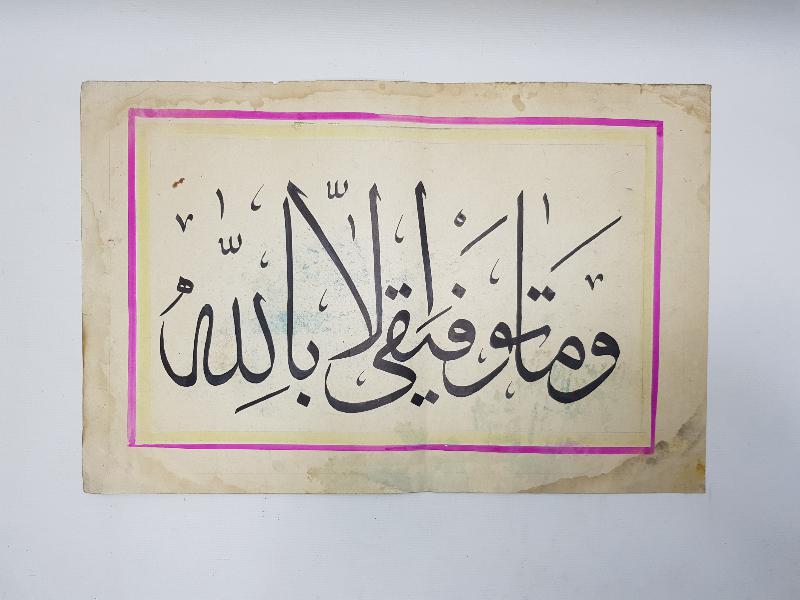 وَمَا تَوْفِيقِى إِلَّا بِاللّٰهِ